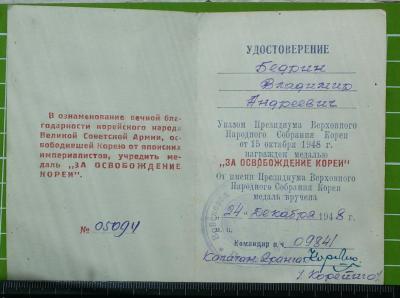 В ознаменование вечной бла-
годарности корейского народа
Великой Советской Армии, ос-
вободившей Корею от японских
империалистов, учредить ме-
даль „ЗА ОСВОБОЖДЕНИЕ
КОРЕИ".
№ 05094
УДОСТОВЕРЕНИЕ
Бедрин
Владимир
Андреевич
Указом Президиума Верховного
Народного Собрания Кореи
от 15 октября 1948 г.
награжден медалью
„ЗА ОСВОБОЖДЕНИЕ КОРЕИ"
От имени Президиума Верховного
Народного Собрания Кореи
медаль вручена
„24" декабря 1948 г.
Командир в. ч. 09841
Капитан